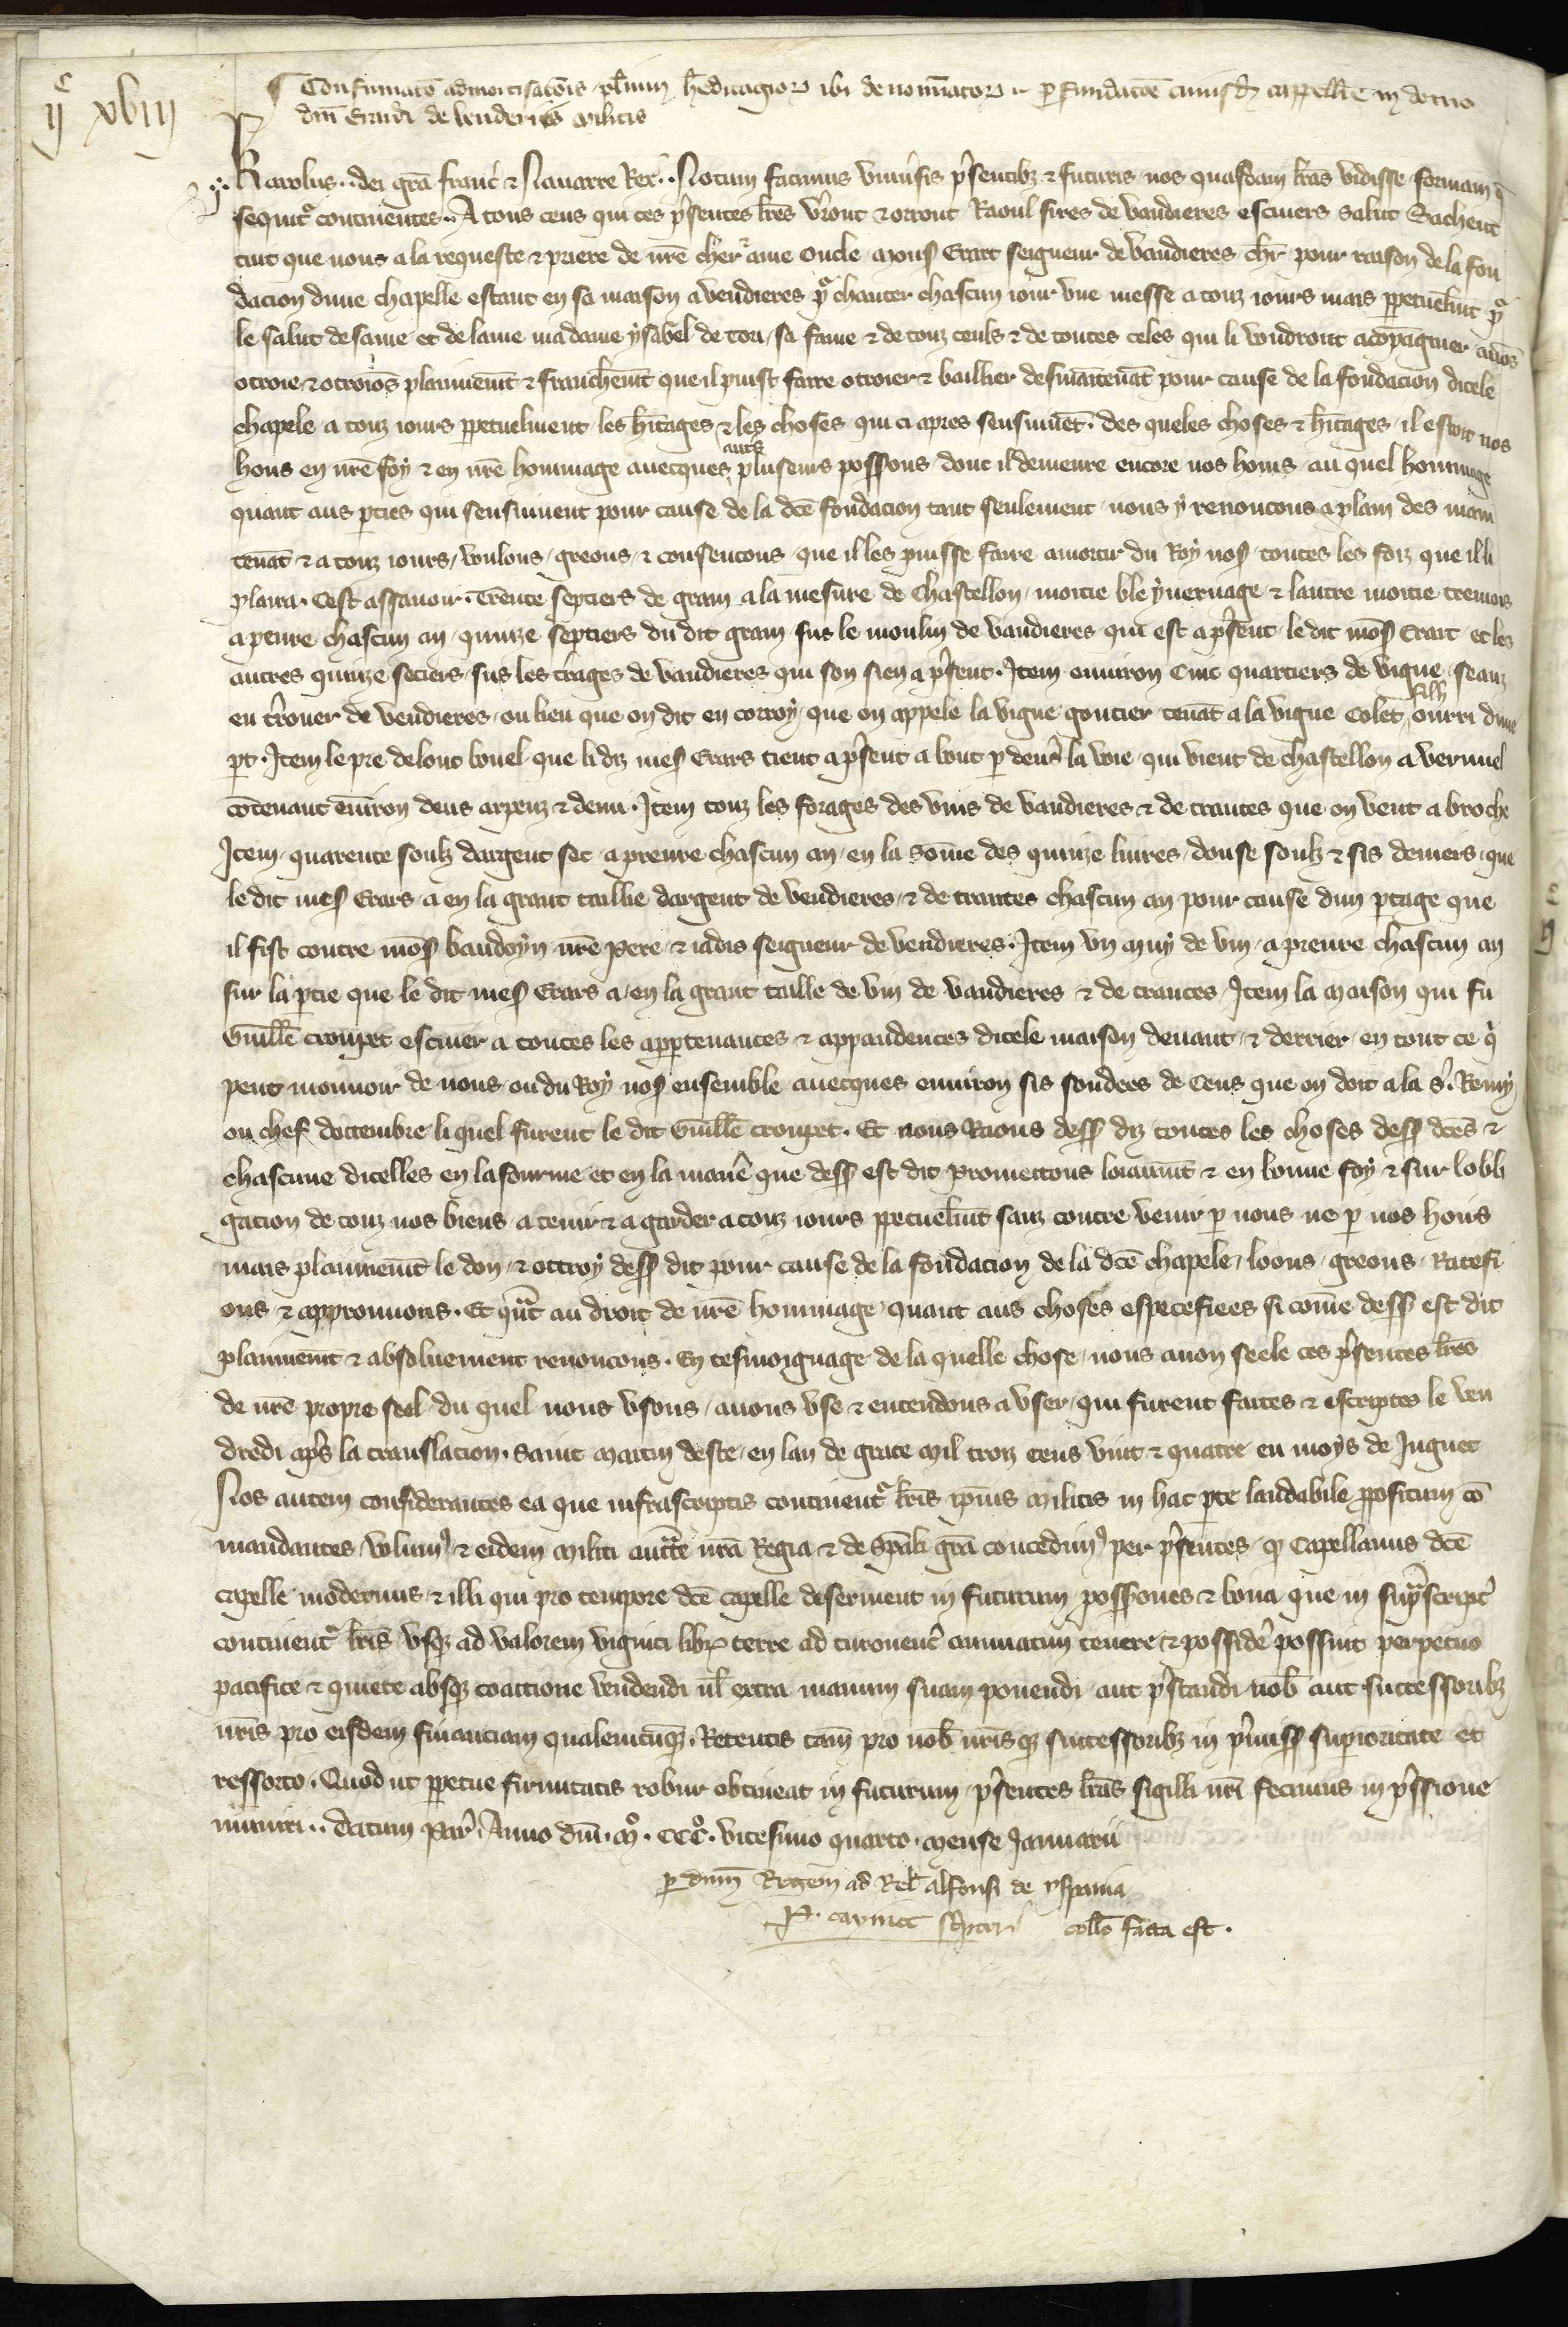 IIc XVIII
¶ Confirmatō admortisatōis pluriū h̄editagioꝝ ibi denominatoꝝ pro fundatōe cuiusdā cappelle in domo
dn̄i Erardi de Venderiis militis
Karolus dei grā franc̄ & Nauarre Rex. Notum facimus vniūsis p̄sentibꝫ & futuris nos quasdam lr̄as vidisse formam q̄
sequit᷑ continentes. A tous ceus qui ces p̄sentes lr̄es v̄ront & orront Raoul sires de vandieres escuiers salut Sachent
tuit que nous a la requeste & priere de nr̄e cher & ame oncle mons̄ Erart seigneur de vandieres ch̄r pour raison de la fon
dacion dune chapelle estant en sa maison a vendieres po᷑ chanter chascun iour vne messe a touz iours mais ꝑpetuelm̄t po᷑
le salut de same et de lame madame ysabel de tou, sa fame & de touz ceuls & de toutes celes qui li voudront acōpaignier auōs
otroie & otroiōs plainnem̄t & franchem̄t que il puist faire otroier & baillier desmaītenāt pour cause de la fondacion dicele
chapele a touz iours ꝑpetuelment les h̄itages & les choses qui ci apres sensuiuēt. des queles choses & h̄itages il estoit nos
hons en nr̄e foy & en nr̄e hommage auecques autꝭ pluseurs poss̄ons dont il demeure encore nos homs au quel hommage
quant aus ꝑties qui sensuiuent pour cause de la dc̄e fondacion tant seulement nous y renoncons a plain des main
tenāt & a touz iours, voulons, greons, & consentons que il les puisse faire amortir du Roy nos̄ toutes les foiz que il li
plaira. Cest assauoir trente septiers de grain a la mesure de chastellon, moitie ble yuernage & lautre moitie tremois
a penre chascun an, quinze septiers du dit grain sus le moulin de vandieres qui est a p̄sent le dit mōs̄ Erart et les
autres quinze sētiers sus les trages de vandieres qui son sien a p̄sent. Item enuiron cinc quartiers de vigne seanz
eu t̄rouer de vendieres, ou lieu que on dit en corroy, que on appele la vigne goutier tenāt a la vigne Colet fillz ourri dune
ꝑt. Item le pre de lont bouel que li diz mes̄ Erars tient a p̄sent a bout p deuers la voie qui vient de chastellon a vernuel
cōtenant enuirōn deus arpenz & demi. Item touz les forages des vins de vandieres & de trantes que on vent a broche
Item quarente soulz dargent sec a prenre chascun an en la sōme des quinze liures, douse soulz & sis deniers que
le dit mes̄ Erars a en la grant taillie dargent de vendieres & de trantes chascun an pour cause dun ꝑtage que
il fist contre mōs̄ baudoyn nr̄e pere & iadis seigneur de vendieres. Item vn muy de vin a prenre chascun an
sur la ꝑtie que le dit mes̄ Erars a en la grant taille de vin de vandieres & de trantes Item la maison qui fu
Guill̄e croupet escuier a toutes les appartenances & appandences dicele maison deuant & derrier en tout ce q̄
peut mouuoir de nous ou du Roy nos̄ ensemble auecques enuiron sis soudees de Cens que on doit a la s̄t Remy
ou chef doctembre li quel furent le dit Guill̄e croupet. Et nous Raous dess̄ diz toutes les choses dess̄ dc̄es &
chascune dicelles en la fourme et en la manē que dess̄ est dit promettons loiaum̄t & en bonne foy & sur lobli
gacion de touz nos biens a tenir & a garder a touz iours ꝑpetuelm̄t sanz contre venir ꝑ nous ne ꝑ nos hoirs
mais plainnem̄t le don & ottroy dess̄ dit pour cause de la fondacion de la dc̄e chapele, loons, greons, ratefi
ons & approuuons. Et qūt au droit de nr̄e hommage quant aus choses especefiees si cōme dess̄ est dit
plainnem̄t & absoluement renoncons. En tesmoignage de la quelle chose nous auon seele ces p̄sentes lr̄es
de nr̄e propre seel du quel nous vsons, auons vse & entendons a vser, qui furent faites & escriptes le ven
dredi ap̄s la translacion saint Martin deste, en lan de grace mil troiz cens vint & quatre en moys de Juignet
Nos autem considerantes ea que infrascriptis continent᷑ lr̄is ip̄ius militis in hac ꝑte laudabile ꝓpositum cō
mandantes, volumꝰ & eidem militi auctt̄e nr̄a Regia & de sp̄ali grā concedimꝰ per p̄sentes, ꝙ Capellanus dc̄e
capelle modernus & illi qui pro tempore dc̄e capelle deseruient in futurum, possōnes & bona que in sup̄script̄
continent᷑ lr̄is vsqꝫ ad valorem viginti libꝝ terre ad turonen̄ annuatim tenere & possid̄e possint perpetuo
pacifice & quiete absqꝫ coactione vendendi uł extra manum suam ponendi aut p̄standi nob̄ aut successoribꝫ
nr̄is pro eisdem financiam qualemcūqꝫ. Retentis tam̄ pro nob̄ nr̄isqꝫ successoribꝫ in p̄miss̄ supioritate et
ressorto. Quod ut ꝑpetue firmitatis robur obtineat in futurum, p̄sentes lr̄as sigilli nr̄i fecimus in p̄ssione
muniri. datum Par̄. Anno dn̄i. mº. CCCº. vicesimo quarto. mense Januarii
ꝑ dn̄m Regem ad Rel̄ alfonsi de yspania
P. caynict sc̄ptor̄ coll̄o facta est.